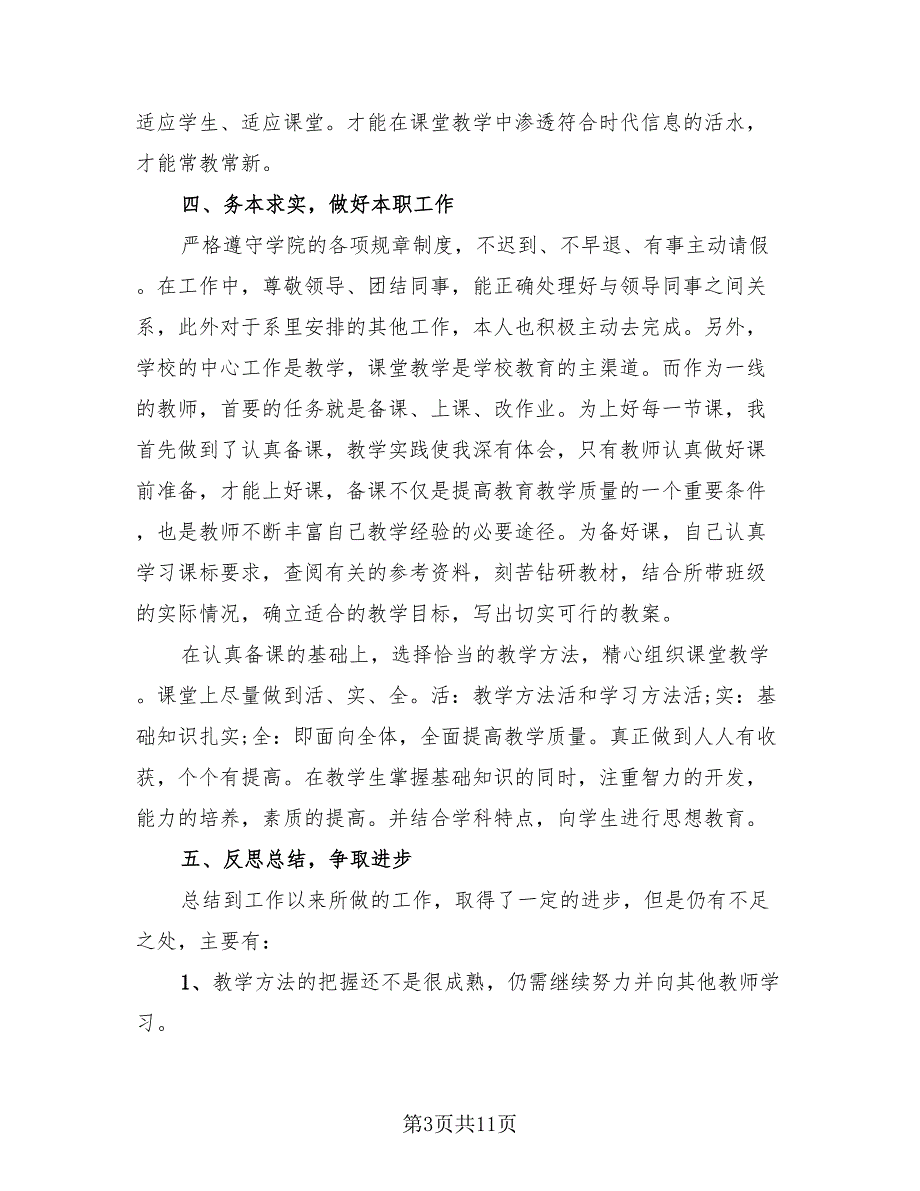 适应学生、适应课堂。才能在课堂教学中渗透符合时代信息的活水，
才能常教常新。
四、务本求实，做好本职工作
严格遵守学院的各项规章制度，不迟到、不早退、有事主动请假
。在工作中，尊敬领导、团结同事，能正确处理好与领导同事之间关
系，此外对于系里安排的其他工作，本人也积极主动去完成。另外，
学校的中心工作是教学，课堂教学是学校教育的主渠道。而作为一线
的教师，首要的任务就是备课、上课、改作业。为上好每一节课，我
首先做到了认真备课，教学实践使我深有体会，只有教师认真做好课
前准备，才能上好课，备课不仅是提高教育教学质量的一个重要条件
，也是教师不断丰富自己教学经验的必要途径。为备好课，自己认真
学习课标要求，查阅有关的参考资料，刻苦钻研教材，结合所带班级
的实际情况，确立适合的教学目标，写出切实可行的教案。
在认真备课的基础上，选择恰当的教学方法，精心组织课堂教学
。课堂上尽量做到活、实、全。活：教学方法活和学习方法活;实：基
础知识扎实;全：即面向全体，全面提高教学质量。真正做到人人有收
获，个个有提高。在教学生掌握基础知识的同时，注重智力的开发，
能力的培养，素质的提高。并结合学科特点，向学生进行思想教育。
五、反思总结，争取进步
总结到工作以来所做的工作，取得了一定的进步，但是仍有不足
之处，主要有：
1、教学方法的把握还不是很成熟，仍需继续努力并向其他教师学
习。
第3页共11页